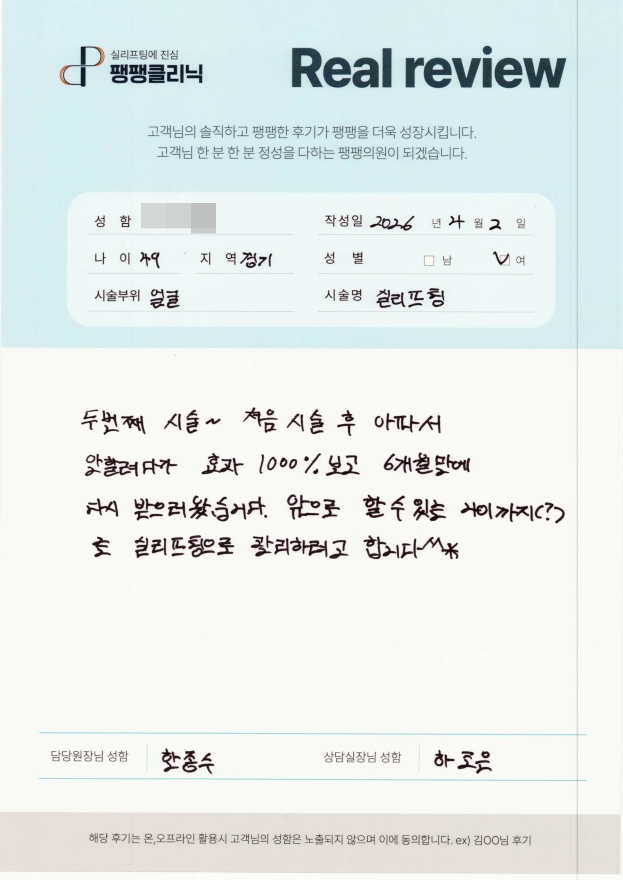 실리프팅에 진심
팽팽클리닉
Real review
고객님의 솔직하고 팽팽한 후기가 팽팽을 더욱 성장시킵니다.
고객님 한 분 한 분 정성을 다하는 팽팽의원이 되겠습니다.
성 함 작성일 2026 년 4 월 2 일
나 이 49 지 역 경기 성 별 남 여
시술부위 얼굴 시술명 실리프팅
두번째 시술~ 처음 시술 후 아파서
안할려다가 효과 1000% 보고 6개월만에
다시 받으러왔습니다. 앞으로 할 수 있는 나이까지(?)
는 실리프팅으로 관리하려고 합니다^^*
담당원장님 성함 한종수 상담실장님 성함 하
해당 후기는 온,오프라인 활용시 고객님의 성함은 노출되지 않으며 이에 동의합니다. ex) 김OO님 후기